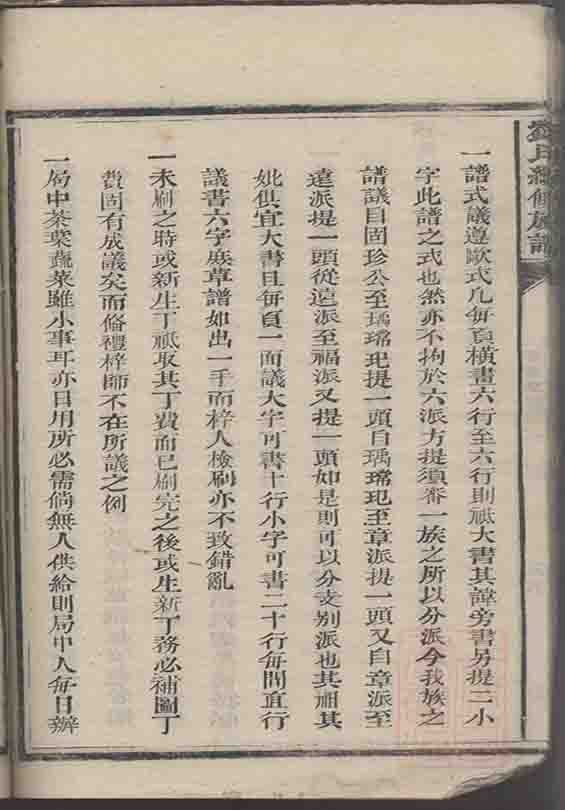 氏續修族譜
一譜式議遵歐式凡每頁橫書六行至六行則祗大書其諱旁書另提二小
字此譜之式也然亦不拘於六派方提須審一族之所以分派今我族之
譜議自固珍公至瑀瑺玘提一頭自瑀瑺玘至章派提一頭又自章派至
遠派提一頭從遠派至福派又提一頭如是則可以分支别派也其祖其
妣俱宜大書且每頁一面議大字可書十行小字可書二十行每間直行
議書六字庶草譜如出一手而梓人檢刷亦不致錯亂
一未刷之時或新生丁祗取其丁費而已刷完之後或生新丁務必補圖丁
費固有成議矣而脩禮梓師不在所議之例
一局中茶柴蔬菜雖小事耳亦日用所必需倘無人供給則局中人每日辦